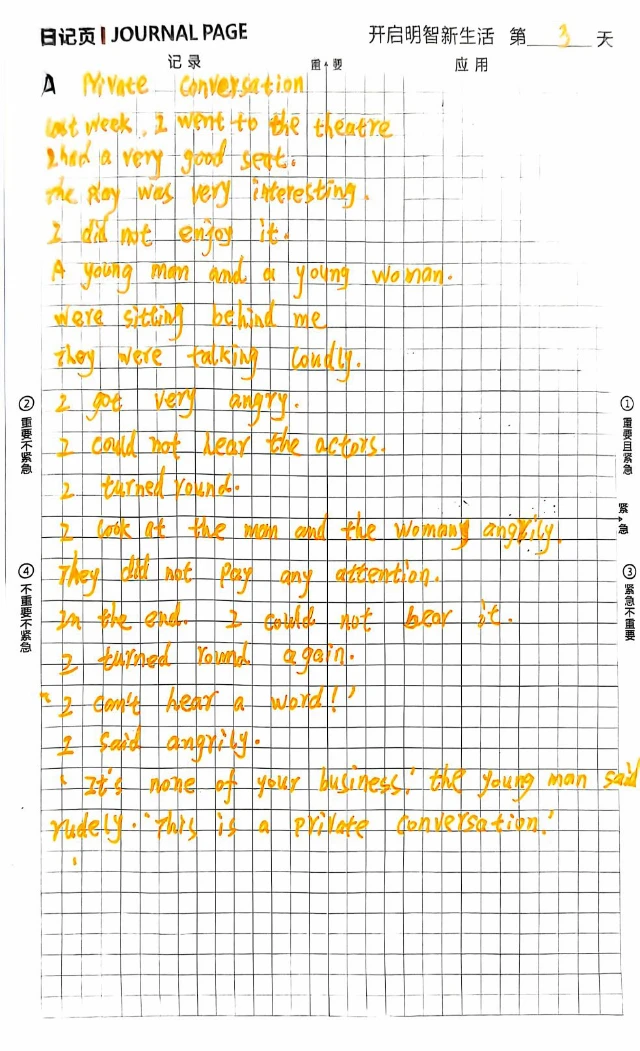 日记页 | JOURNAL PAGE 开启明智新生活 第 3 天
记录 重要 应用
A Private Conversation
Last week, I went to the theatre
I had a very good seat.
the play was very interesting.
I did not enjoy it.
A young man and a young woman.
were sitting behind me
They were talking loudly.
I got very angry.
② 重要不紧急
① 重要且紧急
I could not hear the actors.
I turned round.
紧急
I look at the man and the woman angrily.
They did not pay any attention.
④ 不重要不紧急
③ 紧急不重要
In the end. I could not bear it.
I turned round again.
" I can't hear a word!'
I said angrily.
' It's none of your business.' the young man said
rudely. 'This is a private conversation.'